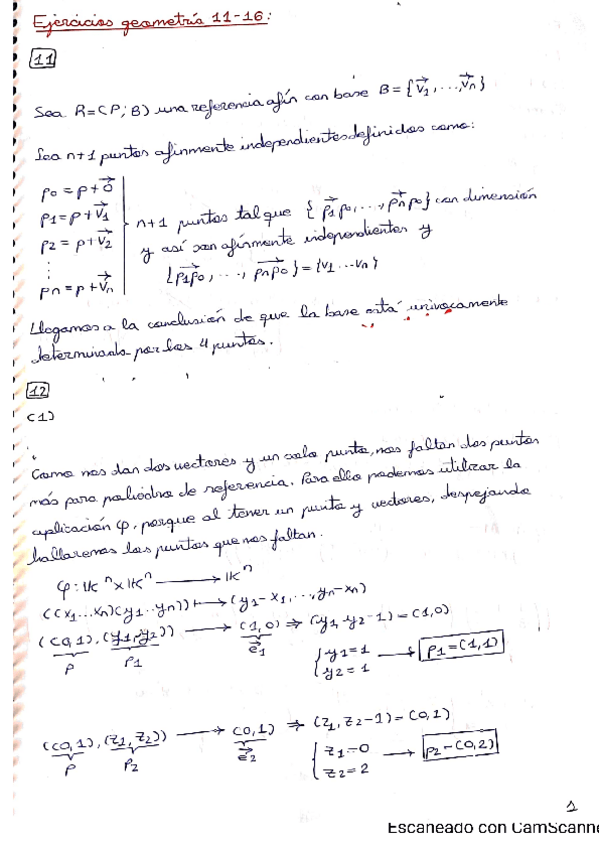 Ejercicios geometría 11-16:
11
Sea R=(P; B) una referencia afín con base B = {v1, ..., vn}
Sea n+1 puntos afinmente independientes definidos como:
p0 = p + 0
p1 = p + v1
p2 = p + v2
⋮
pn = p + vn
n+1 puntos tal que { p1p0, ..., pnp0 } con dimensión
y así son afinmente independientes y
{ p1p0, ..., pnp0 } = {v1 ... vn}
Llegamos a la conclusión de que la base está univocamente
determinada por los 4 puntos.
12
(1)
Como nos dan dos vectores y un solo punto, nos faltan dos puntos
más para poliedro de referencia. Para ello podemos utilizar la
aplicación φ, porque al tener un punto y vectores, despejando
hallaremos los puntos que nos faltan.
φ: IK^n x IK^n → IK^n
((x1...xn)(y1..yn)) ↦ (y1-x1, ..., yn-xn)
((0,1), (y1,y2)) → (1,0) ⇒ (y1, y2-1) = (1,0)
p p1 e1
{ y1=1
y2=1 → p1=(1,1)
((0,1), (z1, z2)) → (0,1) ⇒ (z1, z2-1) = (0,1)
p p2 e2
{ z1=0
z2=2 → p2=(0,2)
1
Escaneado con CamScanne